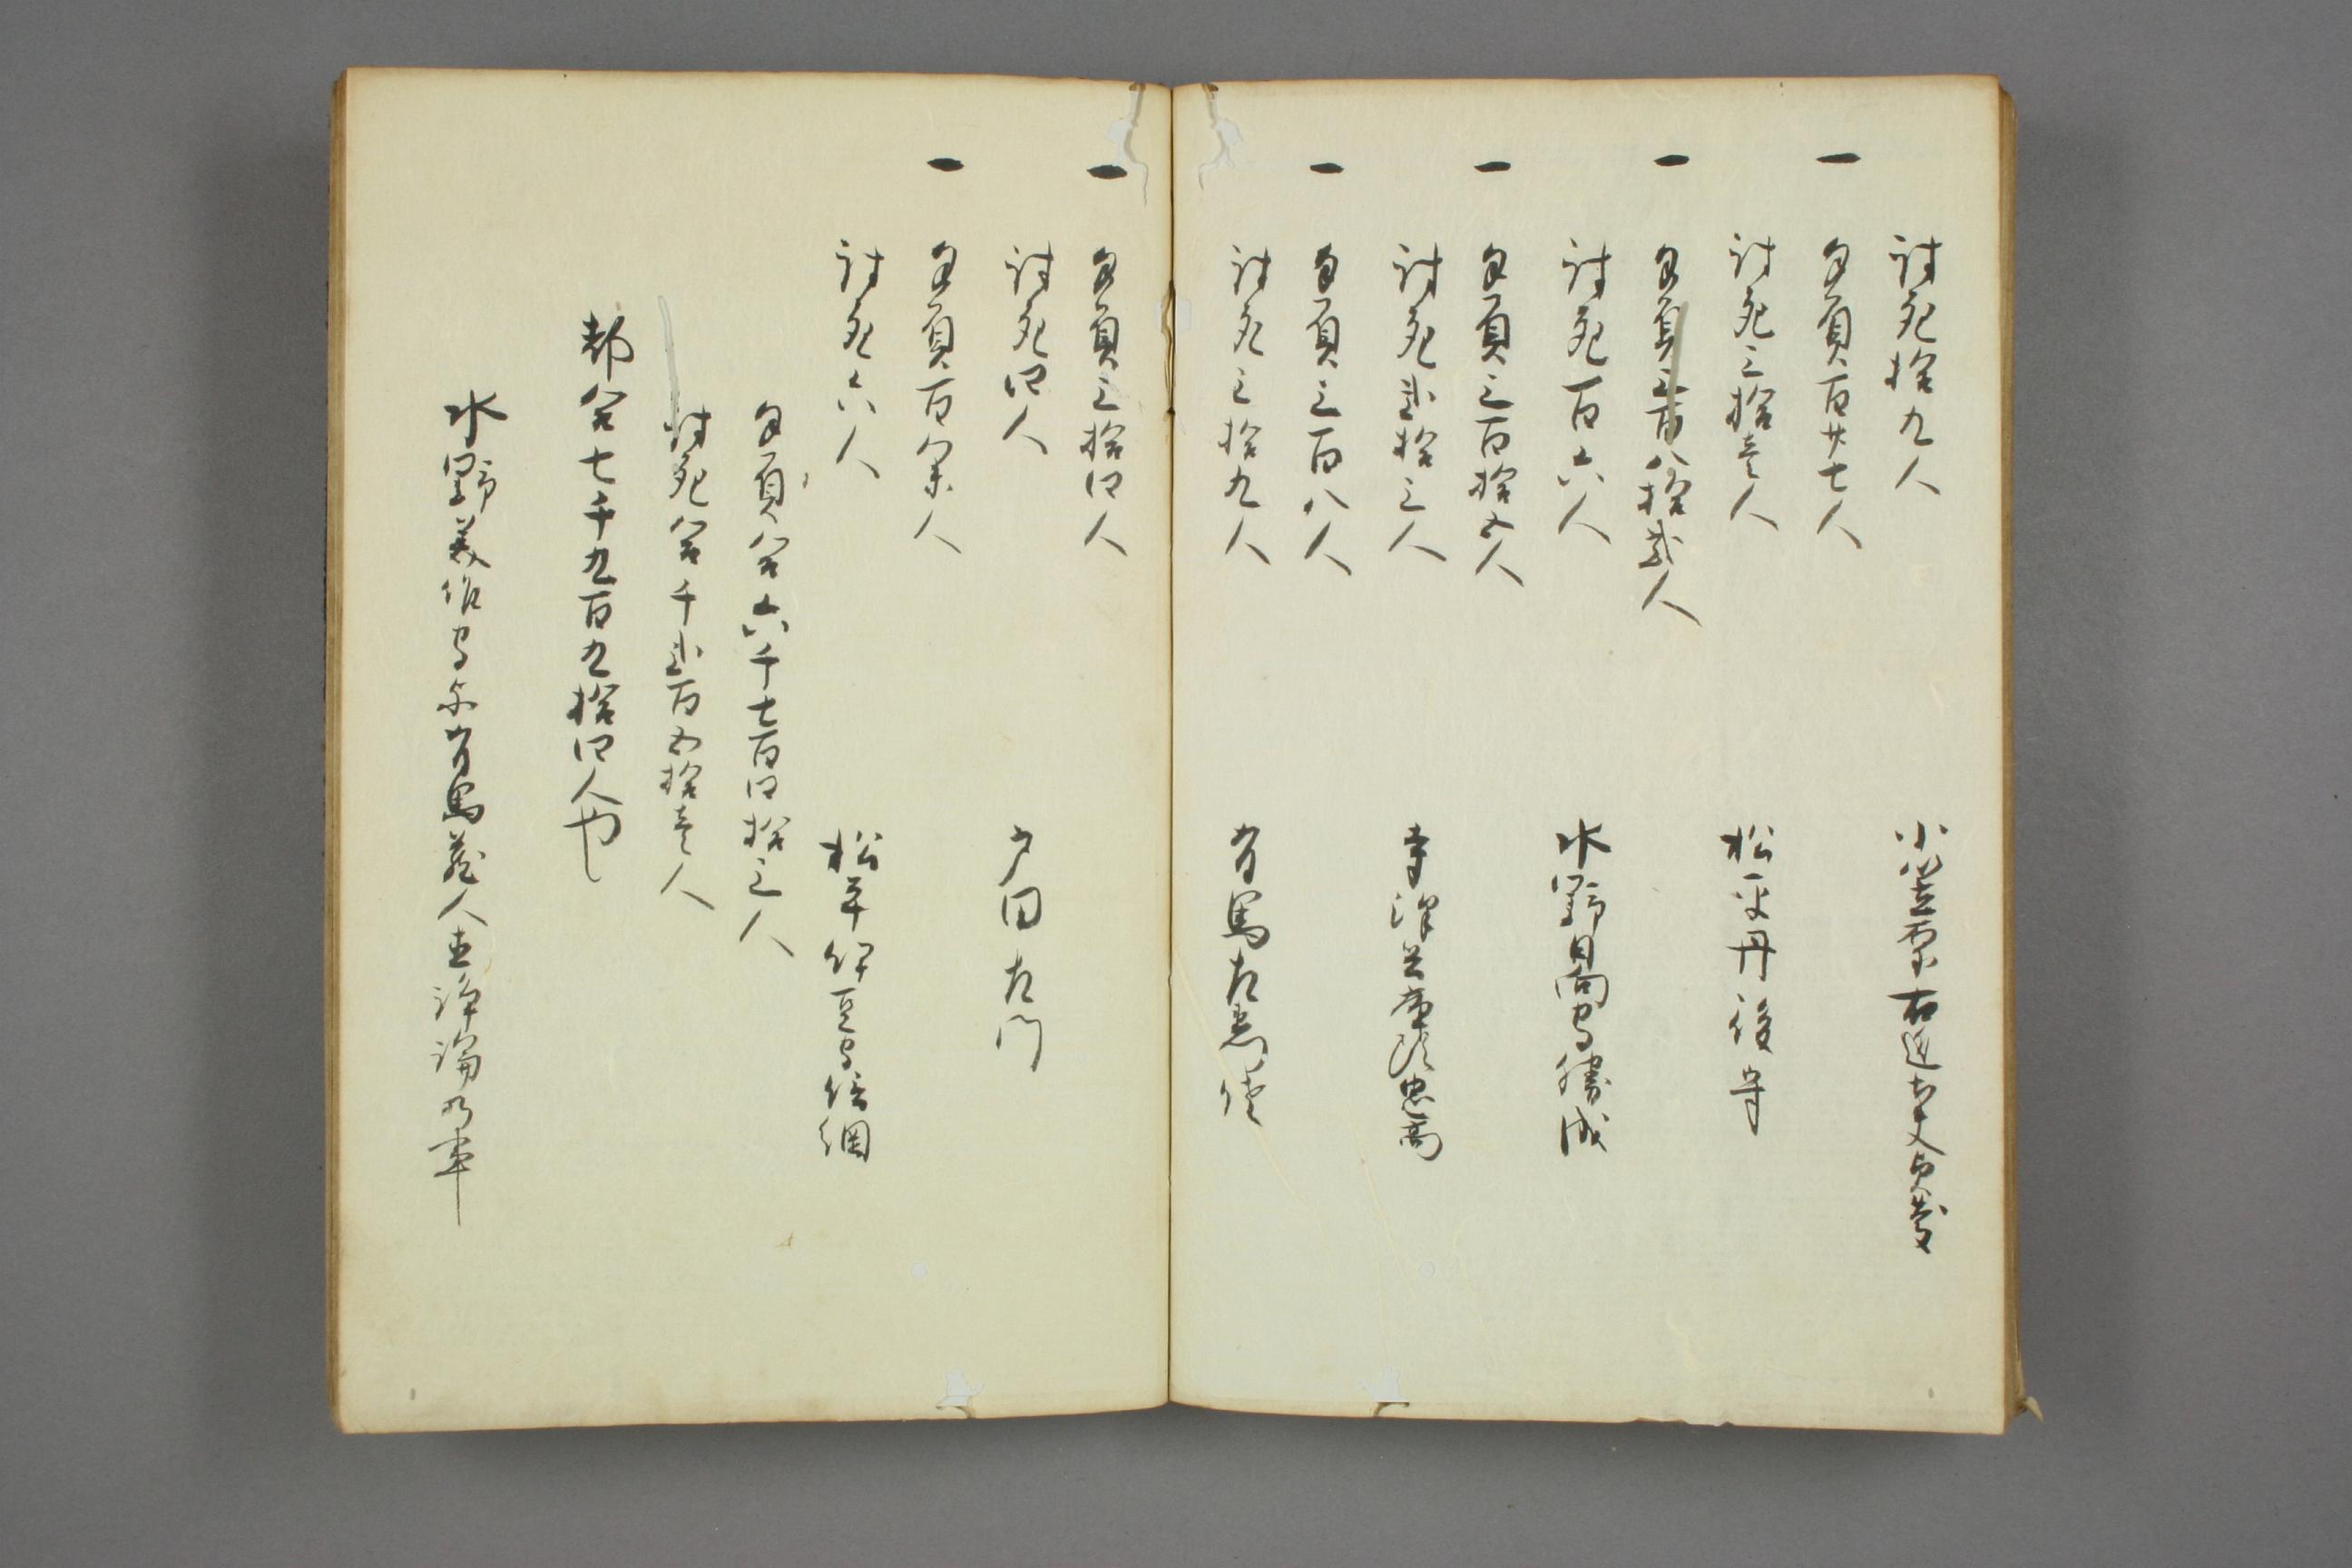 討死拾九人
小笠原右近太夫忠真
一 手負百廿七人
討死三拾壱人
松平丹後守
一 手負三百八拾弐人
討死百六人
水野日向守勝成
一 手負三百拾五人
討死弐拾三人
寺澤兵庫頭忠高
一 手負三百八人
討死三拾九人
有馬左衛門佐
一 手負三拾四人
討死四人
戸田左門
一 手負百余人
討死六人
松平伊豆守信綱
手負合六千七百四拾三人
討死合千弐百五拾壱人
都合七千九百九拾四人也
水野美作守与有馬蔵人互諍論乃事